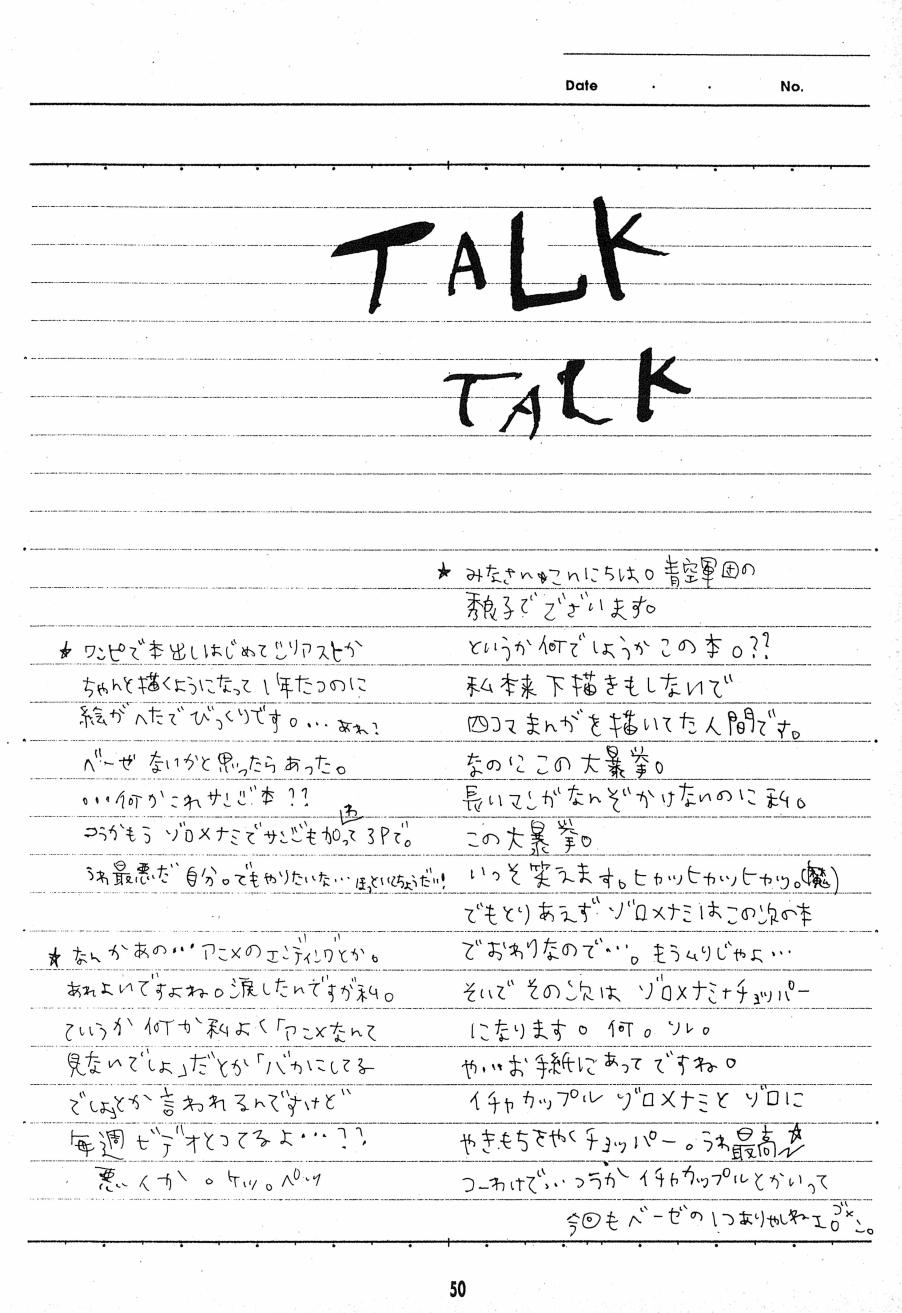 Date ・ ・ No.
TALK
TALK
★ みなさんこんにちは。青空軍団の
秀良子でございます。
というか何でしょうかこの本。??
私本来下描きもしないで
四コマまんがを描いてた人間です。
なのにこの大暴挙。
長いマンガなんぞかけないのに私。
この大暴挙。
いっそ笑えます。ヒカッヒカッヒカッ。(魔)
でもとりあえずゾロ×ナミはこの次の本
でおわりなので…。もうムリじゃよ…
そいでその次はゾロ×ナミ+チョッパー
になります。何。ソレ。
や…お手紙にあってですね。
イチャカップルゾロ×ナミとゾロに
やきもちをやくチョッパー。うわ最高☆
つーわけで…つうかイチャカップルとかいって
今回もベーゼの1つありゃしねェ。ゴメン。
★ ワンピで本出しはじめて
ちゃんと描くようになって1年たつのに
絵がへたでびっくりです。…あれ?
ベーゼないかと思ったらあった。
…何かこれサンジ本??
つうかもうゾロ×ナミでサンジも加わって3Pで。
うわ最悪だ自分。でもやりたいな…ほっといてちょうだい!
★ なんかあの…アニメのエンディングとか。
あれよいですよね。涙したんですが私。
ていうか何か私よく「アニメなんて
見ないでしょ」だとか「バカにしてる
でしょ」とか言われるんですけど
毎週ビデオとってるよ…??
悪いか。ケッ。ペッ
50